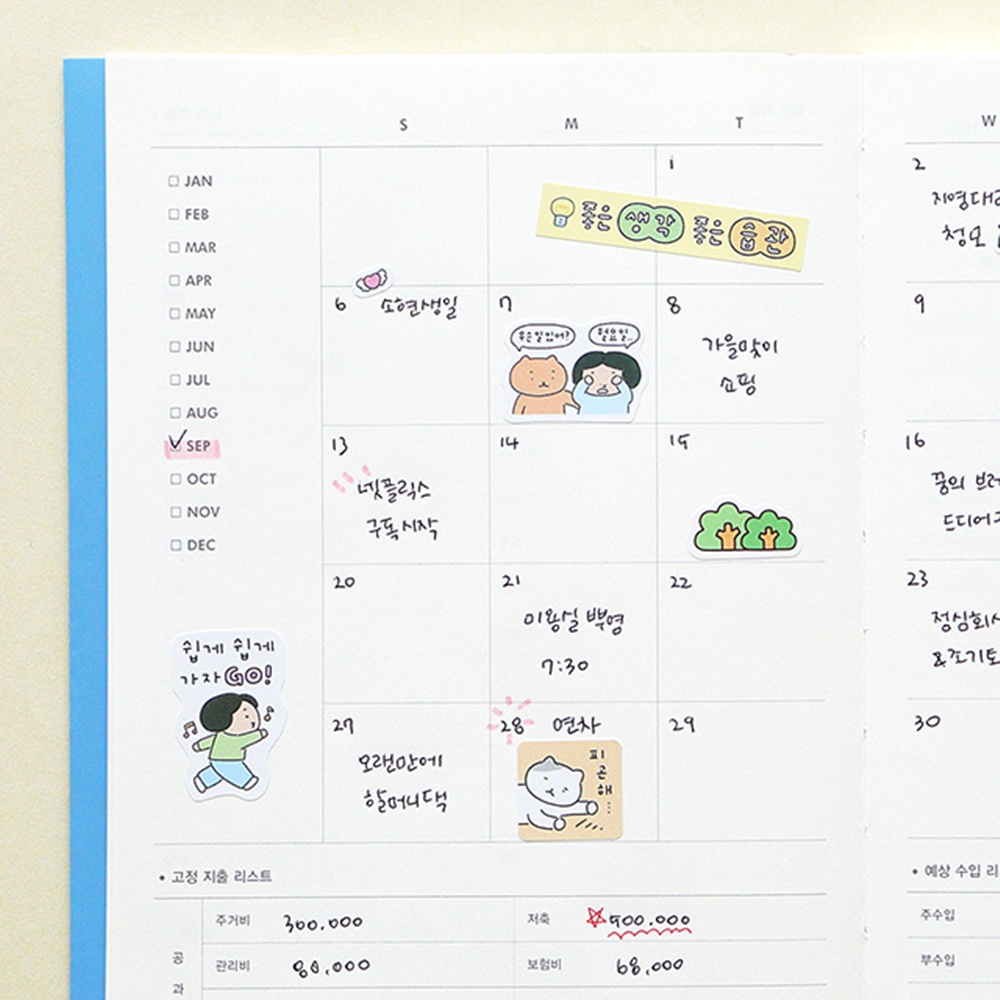 S M T W
☐ JAN
☐ FEB
☐ MAR
☐ APR
☐ MAY
☐ JUN
☐ JUL
☐ AUG
☑ SEP
☐ OCT
☐ NOV
☐ DEC
쉽게 쉽게
가자 GO!
1
좋은 생각 좋은 습관
2
지영대리
청모
6 소현생일
7
좋은 일 있어?
월요일..
8
가을맞이
쇼핑
9
13
넷플릭스
구독 시작
14
15
16
꿈의
드디어
20
21
이왕실 뿌염
7:30
22
23
정심회식
&조기퇴
27
오랜만에
할머니댁
28 연차
피곤해...
29
30
• 고정 지출 리스트
공과
주거비 300.000
저축 ☆900.000
관리비 80,000
보험비 68,000
• 예상 수입 리
주수입
부수입